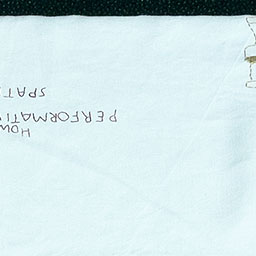 HOW
PERFORMATI
SPATI